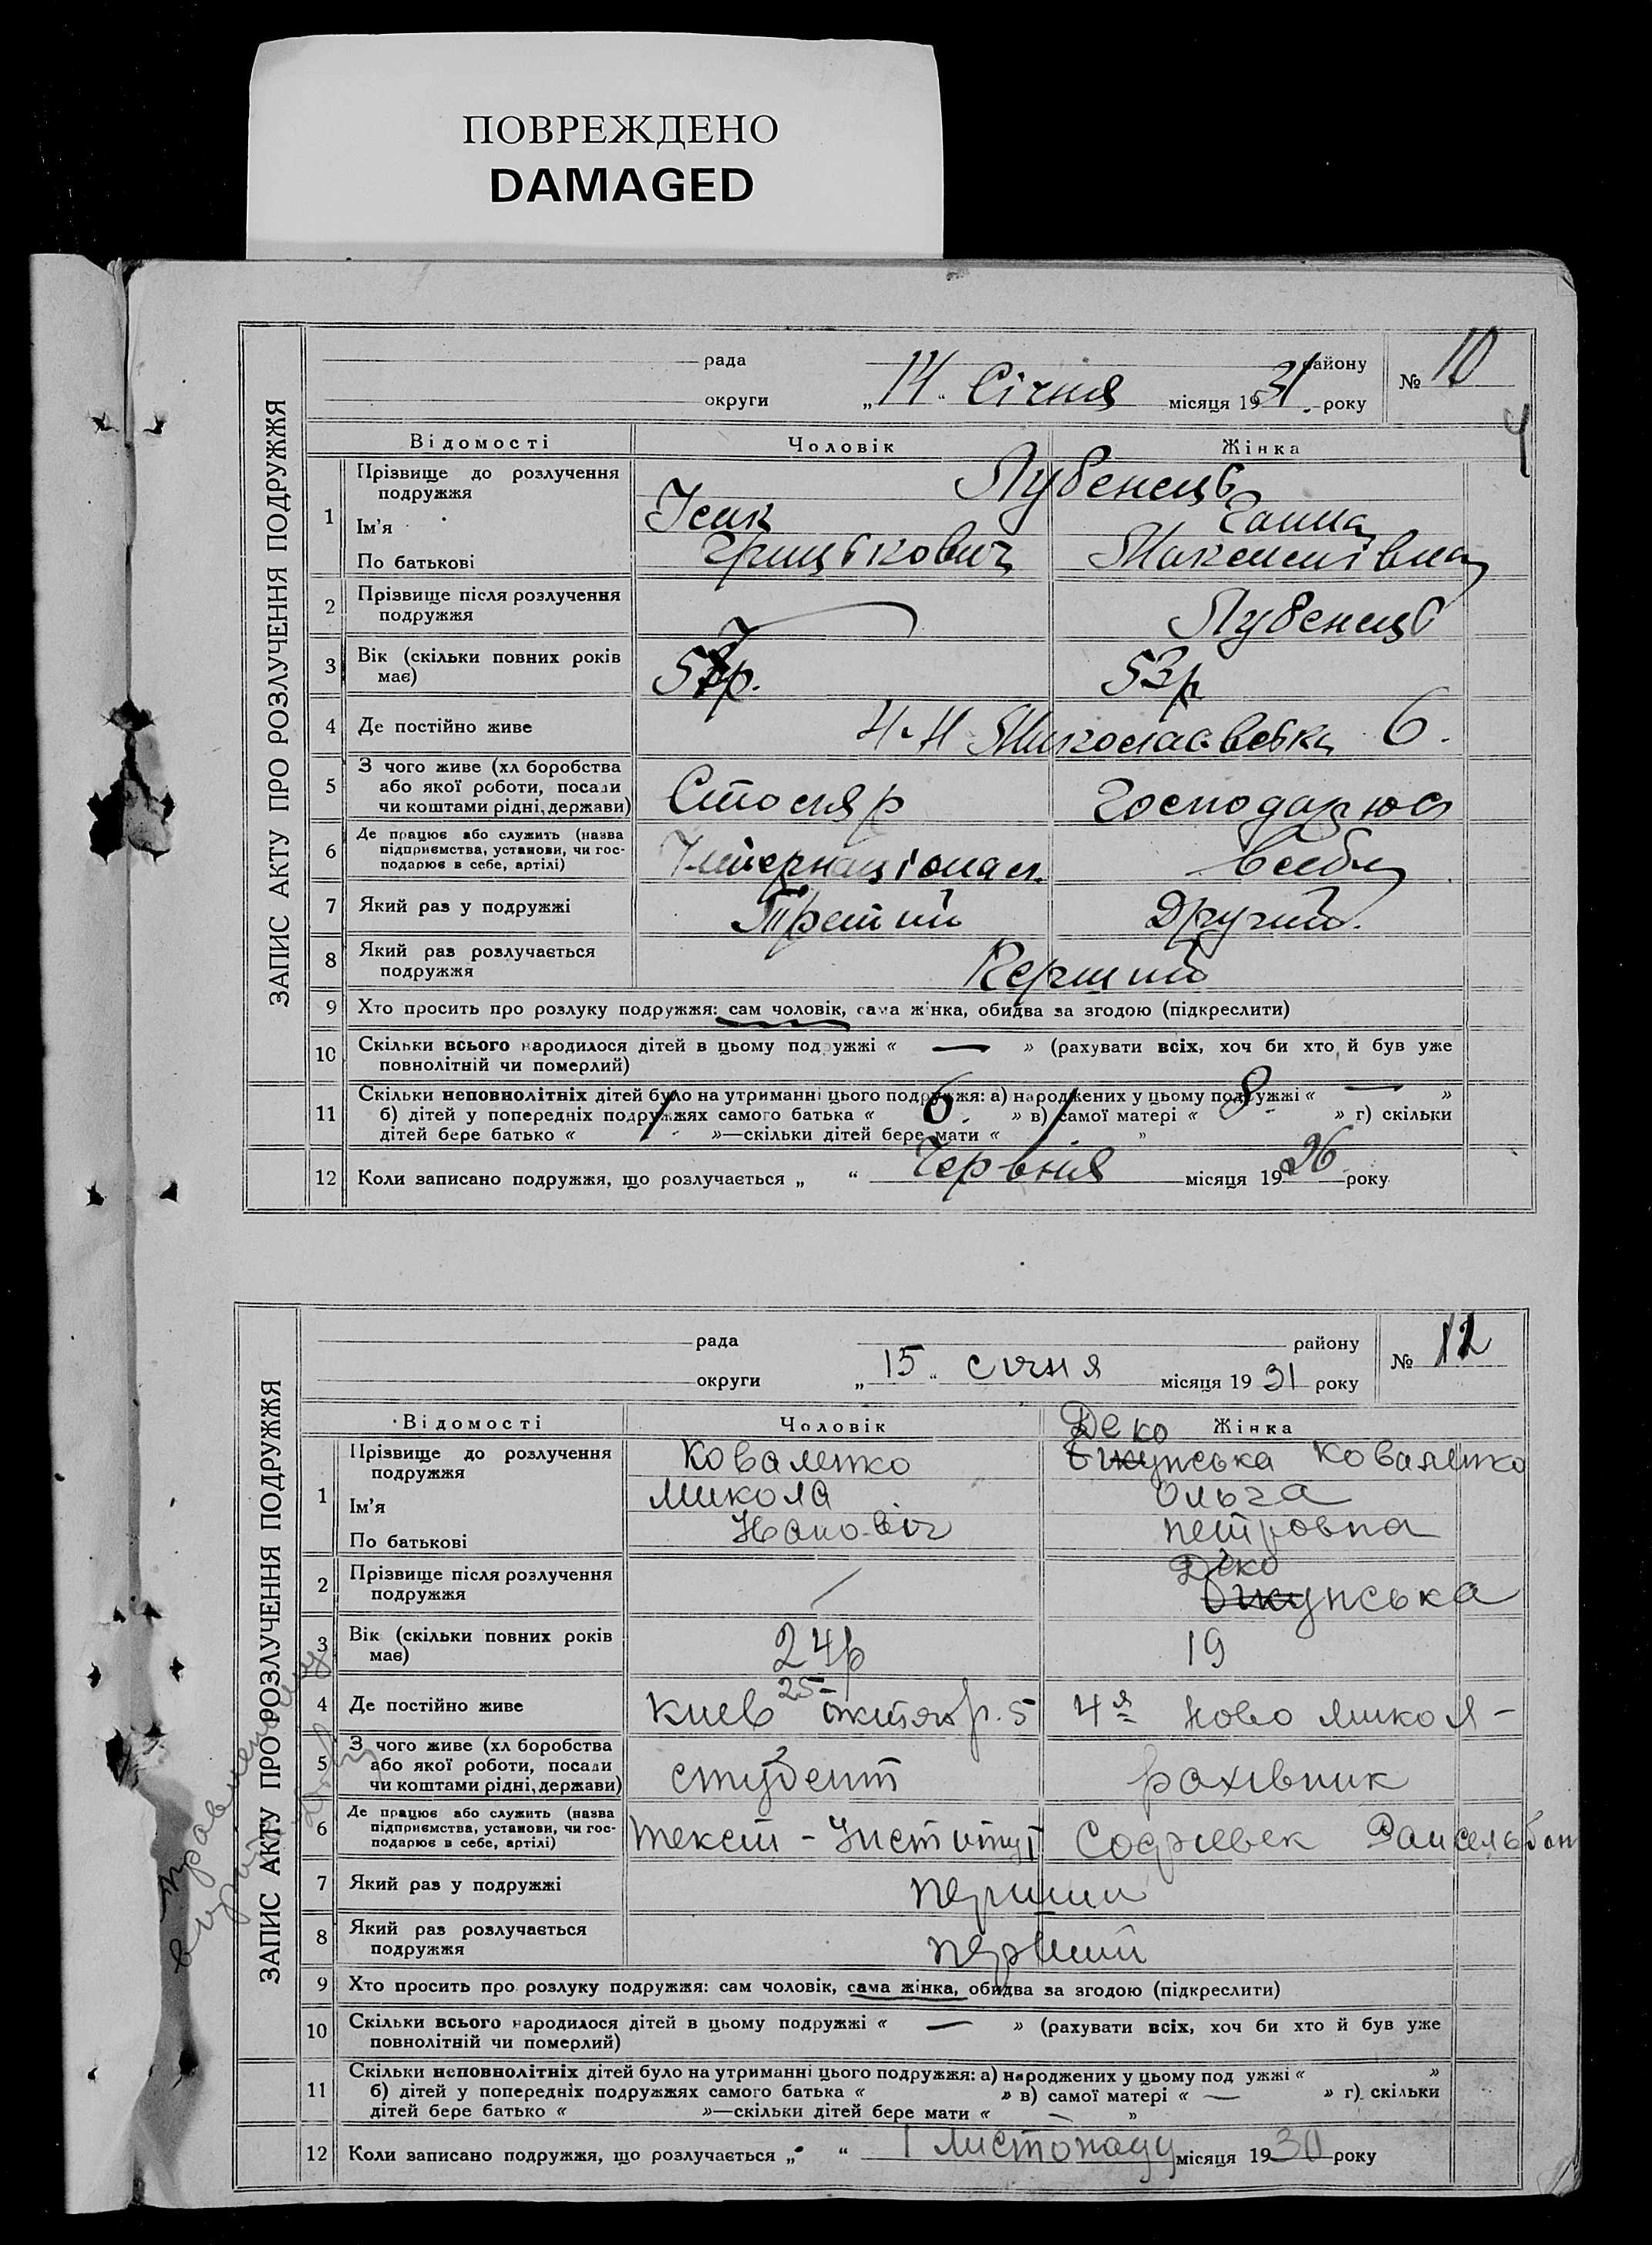 ПОВРЕЖДЕНО
DAMAGED
ЗАПИС АКТУ ПРО РОЗЛУЧЕННЯ ПОДРУЖЖЯ
рада району № 10
округи „14“ Січня місяця 1931. року
4
Відомості Чоловік Жінка
1 Прізвище до розлучення подружжя Лубенець
Ім'я Ісак Ганна
По батькові Грицькович Максимівна
2 Прізвище після розлучення подружжя Лубенець
3 Вік (скільки повних років має) 57р. 53р
4 Де постійно живе 6.
5 З чого живе (хліборобства
або якої роботи, посади
чи коштами рідні, держави) Столяр Господарює
6 Де працює або служить (назва
підприємства, установи, чи гос-
подарює в себе, артілі) Інтернаціонал. в себе
7 Який раз у подружжі Третий Другий.
8 Який раз розлучається
подружжя Перший
9 Хто просить про розлуку подружжя: сам чоловік, сама жінка, обидва за згодою (підкреслити)
10 Скільки всього народилося дітей в цьому подружжі « — » (рахувати всіх, хоч би хто й був уже
повнолітній чи померлий)
11 Скільки неповнолітніх дітей було на утриманні цього подружжя: а) народжених у цьому подружжі « — »
б) дітей у попередніх подружжях самого батька « 6. » в) самої матері « 8. » г) скільки
дітей бере батько « / »—скільки дітей бере мати « / »
12 Коли записано подружжя, що розлучається „ “ Червня місяця 1926 року
ЗАПИС АКТУ ПРО РОЗЛУЧЕННЯ ПОДРУЖЖЯ
рада району № 12
округи „15“ січня місяця 1931 року
Відомості Чоловік Жінка
Деко
1 Прізвище до розлучення
подружжя Коваленко Коваленко
Ім'я Микола Ольга
По батькові Петровна
2 Прізвище після розлучення
подружжя
3 Вік (скільки повних років
має) 24р 19
4 Де постійно живе Киев 25 октяб р. 5 4я Ново микол-
5 З чого живе (хліборобства
або якої роботи, посади
чи коштами рідні, держави) студент рахівник
6 Де працює або служить (назва
підприємства, установи, чи гос-
подарює в себе, артілі) Институт
7 Який раз у подружжі перший
8 Який раз розлучається
подружжя перший
9 Хто просить про розлуку подружжя: сам чоловік, сама жінка, обидва за згодою (підкреслити)
10 Скільки всього народилося дітей в цьому подружжі « — » (рахувати всіх, хоч би хто й був уже
повнолітній чи померлий)
11 Скільки неповнолітніх дітей було на утриманні цього подружжя: а) народжених у цьому под ужжі « »
б) дітей у попередніх подружжях самого батька « » в) самої матері « — » г) скільки
дітей бере батько « »—скільки дітей бере мати « — »
12 Коли записано подружжя, що розлучається „ “ 1 листопаду місяця 1930 року